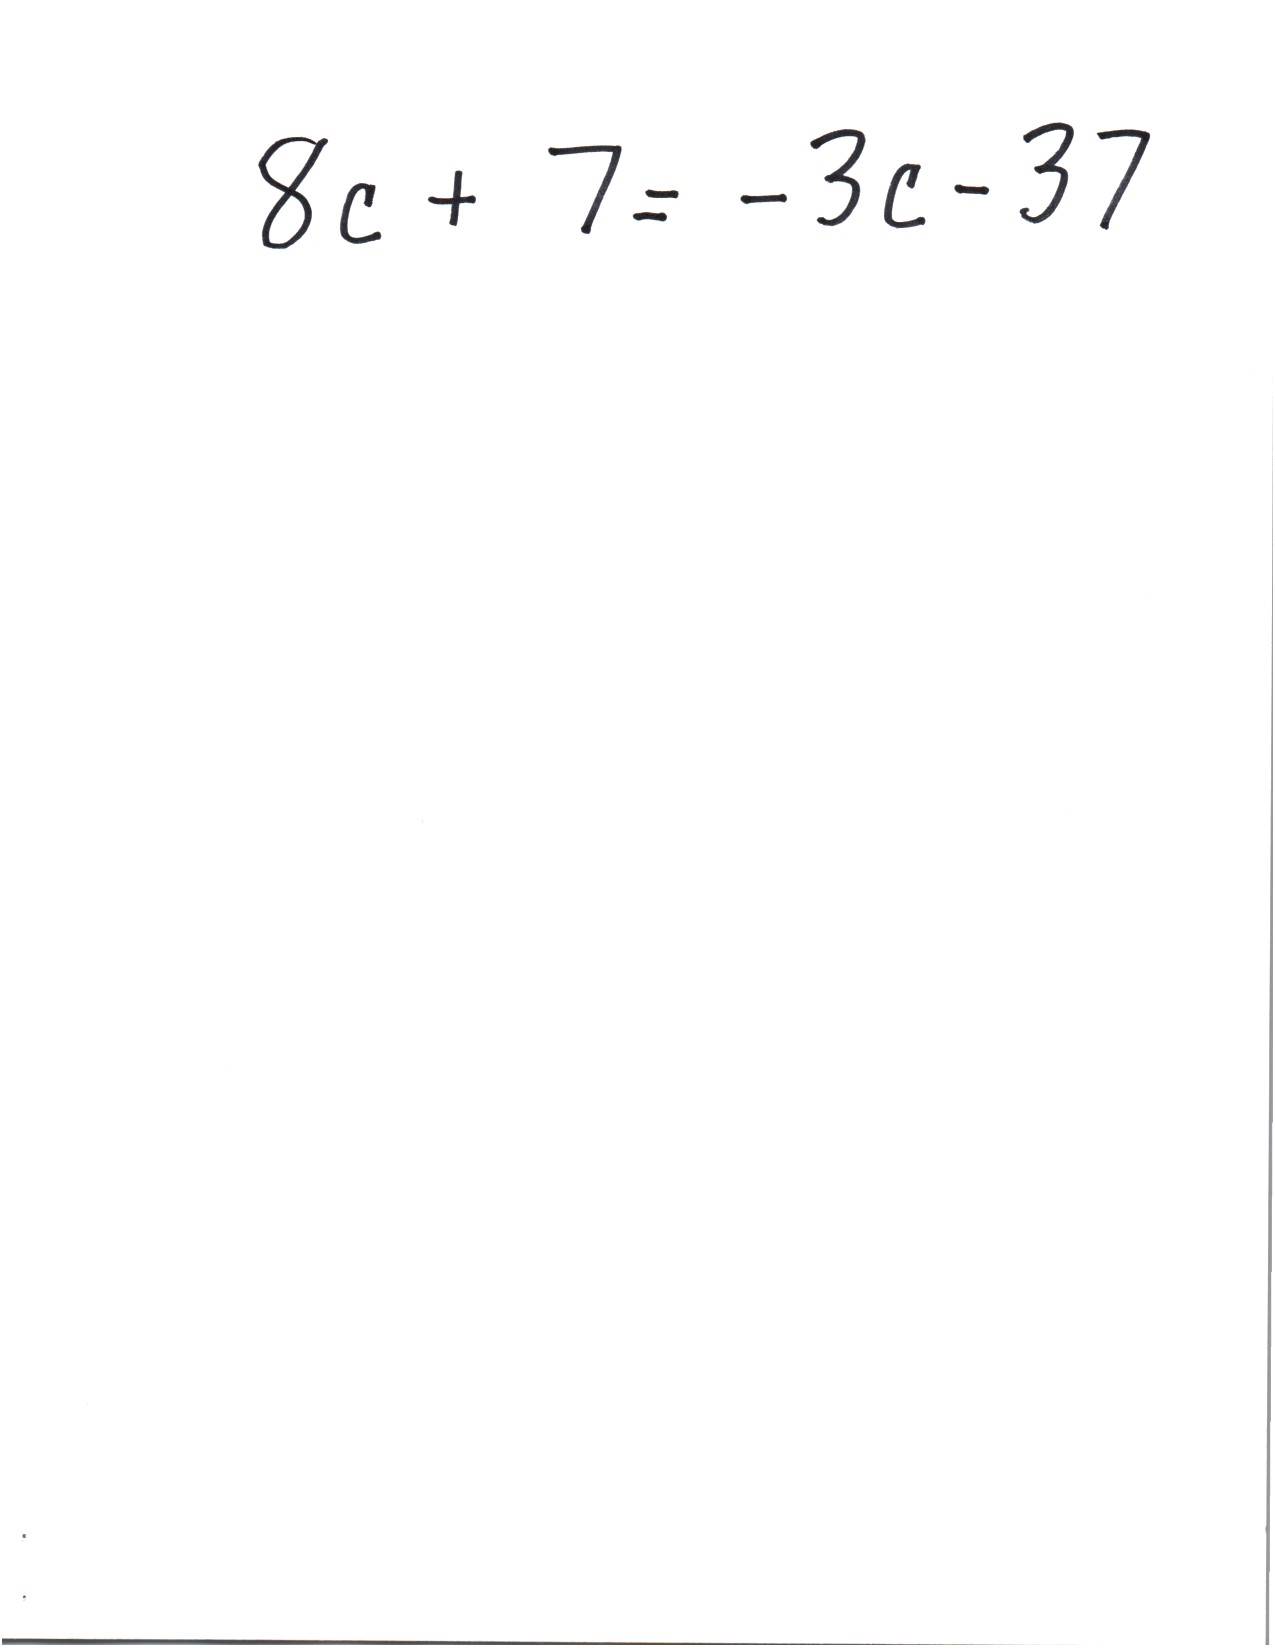 8c + 7 = -3c - 37